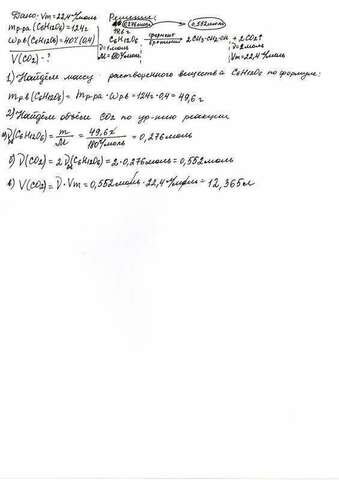 Дано: Vm = 22,4 л/моль
Решение:
m р-ра (C6H12O6) = 124 г
0,276 моль 0,552 моль
49,6 г
ω р.в (C6H12O6) = 40% (0,4)
C6H12O6 фермент брожение 2CH3-CH2-OH + 2CO2↑
ν = 1 моль ν = 2 моль
V(CO2) - ?
M = 180 г/моль Vm = 22,4 л/моль
1) Найдём массу растворенного вещества C6H12O6 по формуле:
m р.в (C6H12O6) = m р-ра · ω р.в = 124 г · 0,4 = 49,6 г
2) Найдём объём CO2 по ур-нию реакции
а) ν(C6H12O6) = m/M = 49,6 г/180 г/моль = 0,276 моль
б) ν(CO2) = 2 ν(C6H12O6) = 2 · 0,276 моль = 0,552 моль
в) V(CO2) = ν · Vm = 0,552 моль · 22,4 л/моль = 12,365 л